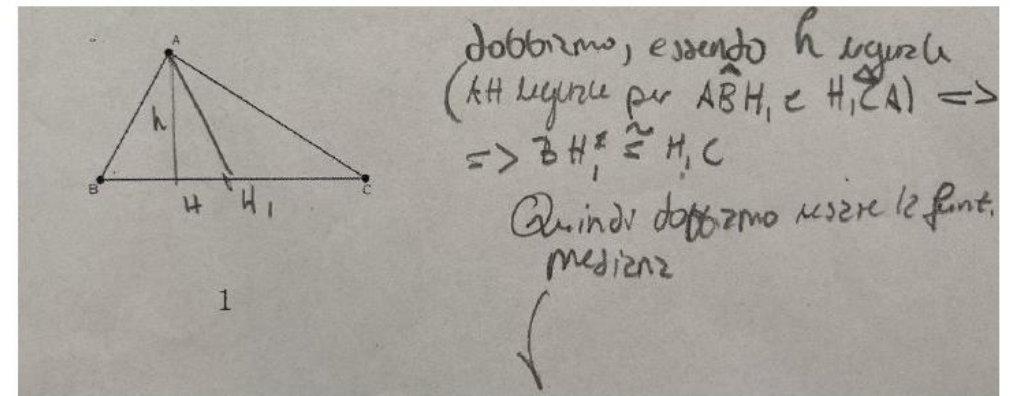 A
h
B
H
H₁
C
1
dobbiamo, essendo h uguale
(AH uguale per AB̂H₁ e H₁ĈA) =>
=> BH₁ ≅ H₁C
Quindi dobbiamo usare la funt.
mediana